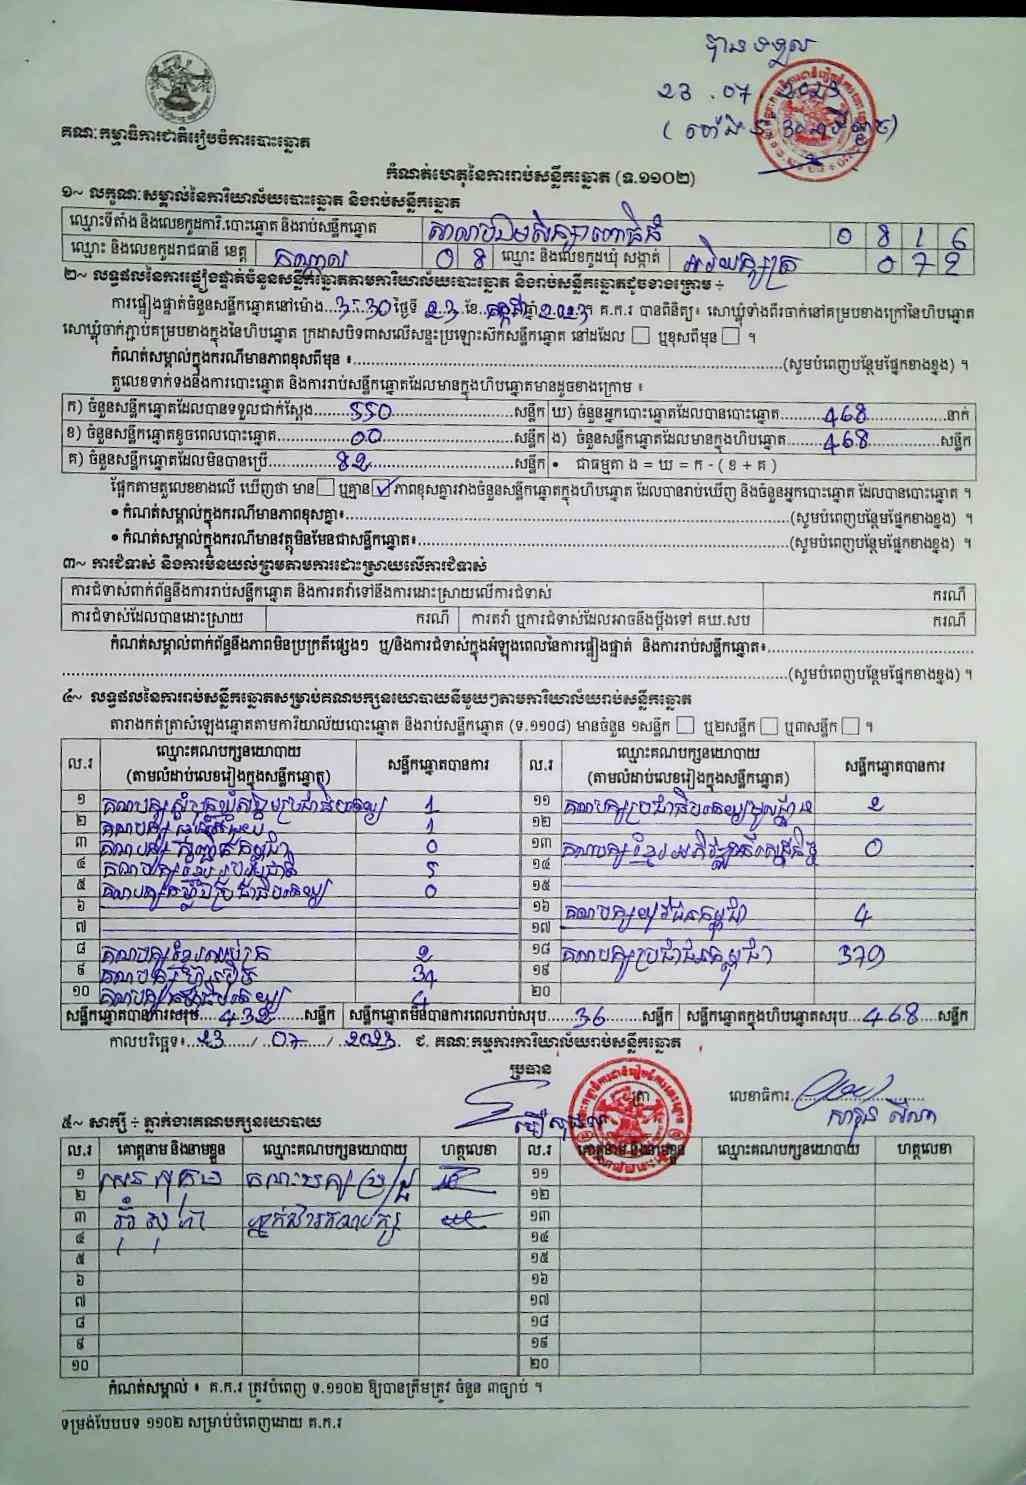 បានទទួល
23 . 07 . 2023
គណៈកម្មាធិការជាតិរៀបចំការបោះឆ្នោត
កំណត់ហេតុនៃការរាប់សន្លឹកឆ្នោត (ទ.១១០២)
១~ លក្ខណៈសម្គាល់នៃការិយាល័យបោះឆ្នោត និងរាប់សន្លឹកឆ្នោត
ឈ្មោះទីតាំង និងលេខកូដការិ.បោះឆ្នោត និងរាប់សន្លឹកឆ្នោត 0 8 1 6
ឈ្មោះ និងលេខកូដរាជធានី ខេត្ត កណ្ដាល 0 8 ឈ្មោះ និងលេខកូដឃុំ សង្កាត់ អរិយក្សត្រ 0 7 2
២~ លទ្ធផលនៃការផ្ទៀងផ្ទាត់ចំនួនសន្លឹកឆ្នោតតាមការិយាល័យបោះឆ្នោត និងរាប់សន្លឹកឆ្នោតដូចខាងក្រោម ÷
ការផ្ទៀងផ្ទាត់ចំនួនសន្លឹកឆ្នោតនៅម៉ោង 3:30 ថ្ងៃទី 23 ខែ កក្កដា ឆ្នាំ 2023 ។ គ.ក.រ បានពិនិត្យ៖ សោឃ្លុំទាំងពីរចាក់នៅគម្របខាងក្រៅនៃហិបឆ្នោត
សោឃ្លុំចាក់ភ្ជាប់គម្របខាងក្នុងនៃហិបឆ្នោត ក្រដាសបិទពាសលើសន្ទះប្រឡោះស៊កសន្លឹកឆ្នោត នៅដដែល ☐ ឬខុសពីមុន ☐ ។
កំណត់សម្គាល់ក្នុងករណីមានភាពខុសពីមុន ៖ (សូមបំពេញបន្ថែមផ្នែកខាងខ្នង) ។
តួលេខទាក់ទងនឹងការបោះឆ្នោត និងការរាប់សន្លឹកឆ្នោតដែលមានក្នុងហិបឆ្នោតមានដូចខាងក្រោម ៖
ក) ចំនួនសន្លឹកឆ្នោតដែលបានទទួលជាក់ស្ដែង 550 សន្លឹក ឃ) ចំនួនអ្នកបោះឆ្នោតដែលបានបោះឆ្នោត 468 នាក់
ខ) ចំនួនសន្លឹកឆ្នោតខូចពេលបោះឆ្នោត 00 សន្លឹក ង) ចំនួនសន្លឹកឆ្នោតដែលមានក្នុងហិបឆ្នោត 468 សន្លឹក
គ) ចំនួនសន្លឹកឆ្នោតដែលមិនបានប្រើ 82 សន្លឹក • ជាធម្មតា ង = ឃ = ក - ( ខ + គ )
ផ្អែកតាមតួលេខខាងលើ ឃើញថា មាន ☐ ឬគ្មាន ☑ ភាពខុសគ្នារវាងចំនួនសន្លឹកឆ្នោតក្នុងហិបឆ្នោត ដែលបានរាប់ឃើញ និងចំនួនអ្នកបោះឆ្នោត ដែលបានបោះឆ្នោត ។
• កំណត់សម្គាល់ក្នុងករណីមានភាពខុសគ្នា៖ (សូមបំពេញបន្ថែមផ្នែកខាងខ្នង) ។
• កំណត់សម្គាល់ក្នុងករណីមានវត្ថុមិនមែនជាសន្លឹកឆ្នោត៖ (សូមបំពេញបន្ថែមផ្នែកខាងខ្នង) ។
៣~ ការជំទាស់ និងការមិនយល់ព្រមតាមការដោះស្រាយលើការជំទាស់
ការជំទាស់ពាក់ព័ន្ធនឹងការរាប់សន្លឹកឆ្នោត និងការតវ៉ាទៅនឹងការដោះស្រាយលើការជំទាស់ ករណី
ការជំទាស់ដែលបានដោះស្រាយ ករណី ការតវ៉ា ឬការជំទាស់ដែលអាចនឹងប្ដឹងទៅ គឃ.សប ករណី
កំណត់សម្គាល់ពាក់ព័ន្ធនឹងភាពមិនប្រក្រតីផ្សេងៗ ឬ/និងការជំទាស់ក្នុងអំឡុងពេលនៃការផ្ទៀងផ្ទាត់ និងការរាប់សន្លឹកឆ្នោត៖
(សូមបំពេញបន្ថែមផ្នែកខាងខ្នង) ។
៤~ លទ្ធផលនៃការរាប់សន្លឹកឆ្នោតសម្រាប់គណបក្សនយោបាយនីមួយៗតាមការិយាល័យរាប់សន្លឹកឆ្នោត
តារាងកត់ត្រាសំឡេងឆ្នោតតាមការិយាល័យបោះឆ្នោត និងរាប់សន្លឹកឆ្នោត (ទ.១១០៨) មានចំនួន ១សន្លឹក ☐ ឬ២សន្លឹក ☐ ឬ៣សន្លឹក ☐ ។
ល.រ ឈ្មោះគណបក្សនយោបាយ (តាមលំដាប់លេខរៀងក្នុងសន្លឹកឆ្នោត) សន្លឹកឆ្នោតបានការ ល.រ ឈ្មោះគណបក្សនយោបាយ (តាមលំដាប់លេខរៀងក្នុងសន្លឹកឆ្នោត) សន្លឹកឆ្នោតបានការ
១ គណបក្សសំបុកឃ្មុំសង្គមប្រជាធិបតេយ្យ 1 ១១ គណបក្សប្រជាធិបតេយ្យមូលដ្ឋាន 2
២ គណបក្ស 1 ១២
៣ គណបក្ស កម្ពុជា 0 ១៣ គណបក្សខ្មែរអភិវឌ្ឍន៍សេដ្ឋកិច្ច 0
៤ គណបក្សខ្មែររួបរួមជាតិ 5 ១៤
៥ គណបក្សកម្លាំងប្រជាធិបតេយ្យ 0 ១៥
៦ ១៦ គណបក្សយុវជនកម្ពុជា 4
៧ ១៧
៨ គណបក្សខ្មែរឈប់ក្រ 2 ១៨ គណបក្សប្រជាជនកម្ពុជា 379
៩ គណបក្សហ៊្វុនស៊ិនប៉ិច 34 ១៩
១០ គណបក្ស 4 ២០
សន្លឹកឆ្នោតបានការសរុប 432 សន្លឹក សន្លឹកឆ្នោតមិនបានការពេលរាប់សរុប 36 សន្លឹក សន្លឹកឆ្នោតក្នុងហិបឆ្នោតសរុប 468 សន្លឹក
កាលបរិច្ឆេទ៖ 23 / 07 / 2023 ជ. គណៈកម្មការការិយាល័យរាប់សន្លឹកឆ្នោត
ប្រធាន
ត្រា លេខាធិការ
៥~ សាក្សី ÷ ភ្នាក់ងារគណបក្សនយោបាយ
ល.រ គោត្តនាម និងនាមខ្លួន ឈ្មោះគណបក្សនយោបាយ ហត្ថលេខា ល.រ គោត្តនាម និងនាមខ្លួន ឈ្មោះគណបក្សនយោបាយ ហត្ថលេខា
១ ១១
២ ១២
៣ ភ្នាក់ងារគណបក្ស ១៣
៤ ១៤
៥ ១៥
៦ ១៦
៧ ១៧
៨ ១៨
៩ ១៩
១០ ២០
កំណត់សម្គាល់ ៖ គ.ក.រ ត្រូវបំពេញ ទ.១១០២ ឱ្យបានត្រឹមត្រូវ ចំនួន ៣ច្បាប់ ។
ទម្រង់បែបបទ ១១០២ សម្រាប់បំពេញដោយ គ.ក.រ